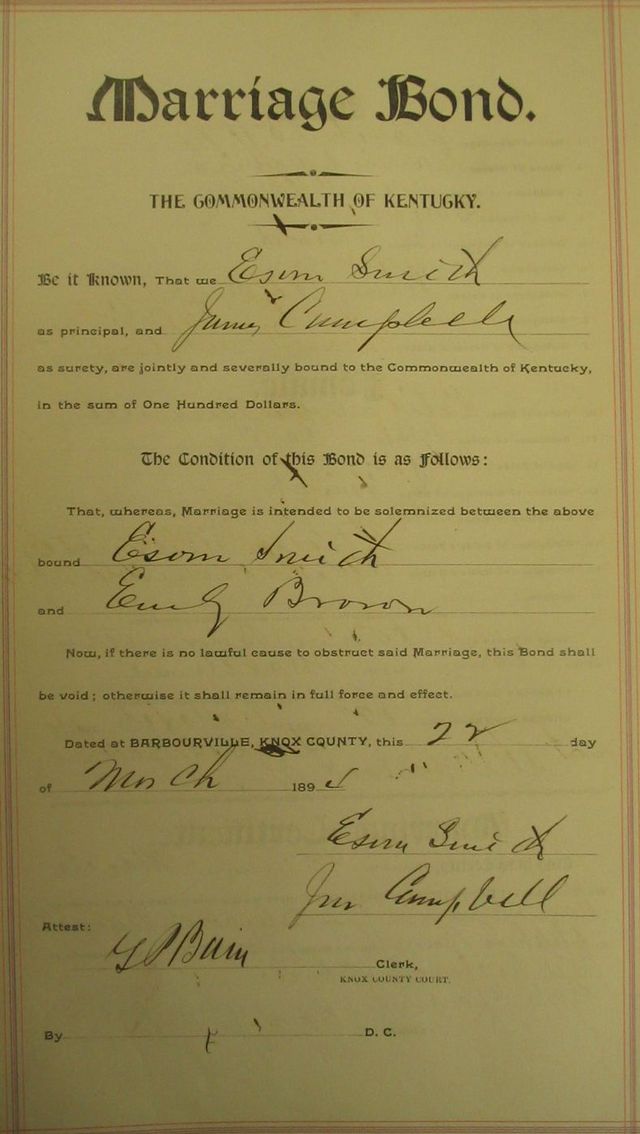 Marriage Bond.
THE COMMONWEALTH OF KENTUCKY.
Be it Known, That we Esom Smith
as principal, and James Campbell
as surety, are jointly and severally bound to the Commonwealth of Kentucky,
in the sum of One Hundred Dollars.
The Condition of this Bond is as Follows:
That, whereas, Marriage is intended to be solemnized between the above
bound Esom Smith
and Emily Brown
Now, if there is no lawful cause to obstruct said Marriage, this Bond shall
be void; otherwise it shall remain in full force and effect.
Dated at BARBOURVILLE, KNOX COUNTY, this 22 day
of March 189
Esom Smith
Campbell
Attest:
Clerk,
KNOX COUNTY COURT.
By D. C.